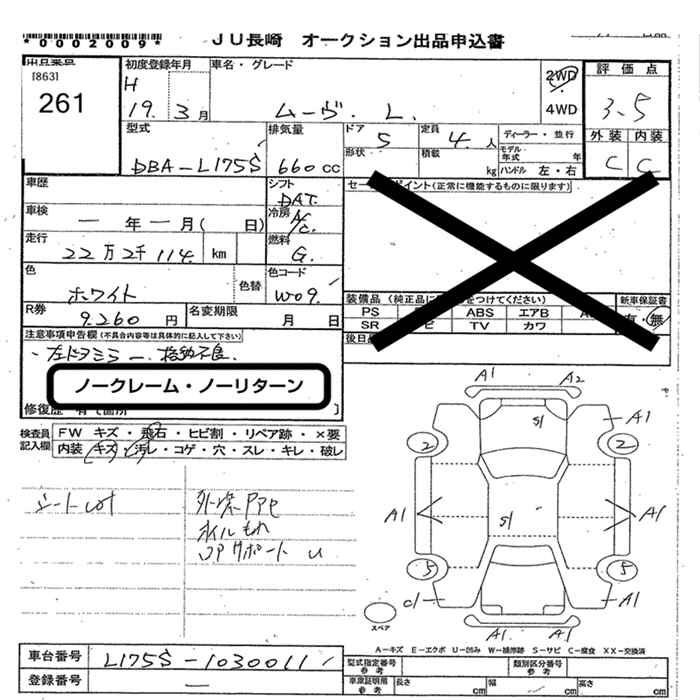 *0002009*
JU長崎 オークション出品申込書
[863]
261
初度登録年月
H
19. 3月
車名・グレード
ムーヴ. L.
2WD
4WD
評価点
3.5
外装 内装
C C
型式
DBA-L175S
排気量
660cc
ドア 5
形状
定員 4人
積載 kg
ディーラー・並行
モデル年式 年
ハンドル 左・右
車歴
シフト
DAT.
セールスポイント(正常に機能するものに限ります)
車検
一年一月( 日)
冷房
A/C.
走行
22万2千114. km
燃料
G.
色
ホワイト
色替
色コード
W09.
装備品(純正品に をつけてください)
新車保証書
有・無
PS ABS エアB
SR TV カワ
R券
9.260円
名変期限
月 日
後日品
注意事項申告欄(不具合内容等は具体的に記入して下さい)
・左ドアミラー. 格納不良.
ノークレーム・ノーリターン
修復歴 有(箇所 )
検査員記入欄
FW キズ・飛石・ヒビ割・リペア跡・×要
内装 キズ・汚レ・コゲ・穴・スレ・キレ・破レ
外装
ホイルもれ
サポート U
A1 A2
S1 A1
2 2
A1 S1 A1
5 5
A1
A1 A1
スペア
A-キズ E-エクボ U-凹み W-補修跡 S-サビ C-腐食 XX-交換済
車台番号
L175S-1030011
登録番号
型式指定番号 参考
類別区分番号 参考
車庫証明用 参考
長さ cm 幅 cm 高さ cm